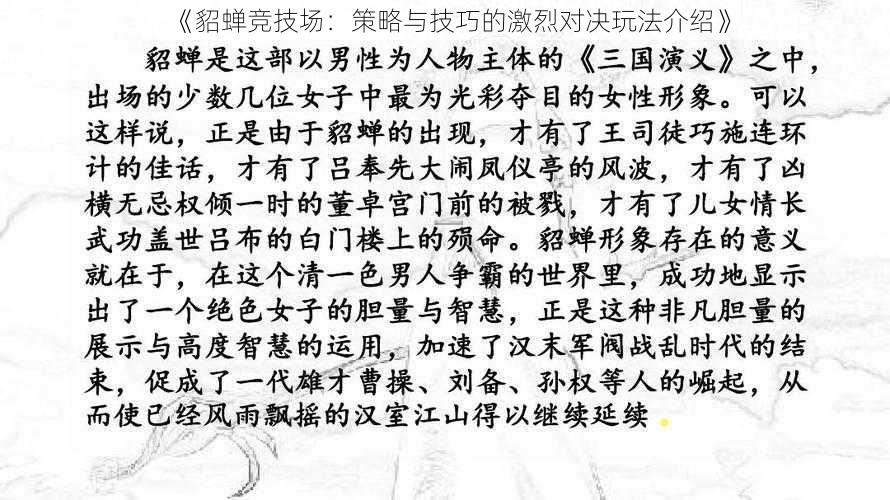 《貂蝉竞技场：策略与技巧的激烈对决玩法介绍》
貂蝉是这部以男性为人物主体的《三国演义》之中，
出场的少数几位女子中最为光彩夺目的女性形象。可以
这样说，正是由于貂蝉的出现，才有了王司徒巧施连环
计的佳话，才有了吕奉先大闹凤仪亭的风波，才有了凶
横无忌权倾一时的董卓宫门前的被戮，才有了儿女情长
武功盖世吕布的白门楼上的殒命。貂蝉形象存在的意义
就在于，在这个清一色男人争霸的世界里，成功地显示
出了一个绝色女子的胆量与智慧，正是这种非凡胆量的
展示与高度智慧的运用，加速了汉末军阀战乱时代的结
束，促成了一代雄才曹操、刘备、孙权等人的崛起，从
而使已经风雨飘摇的汉室江山得以继续延续。